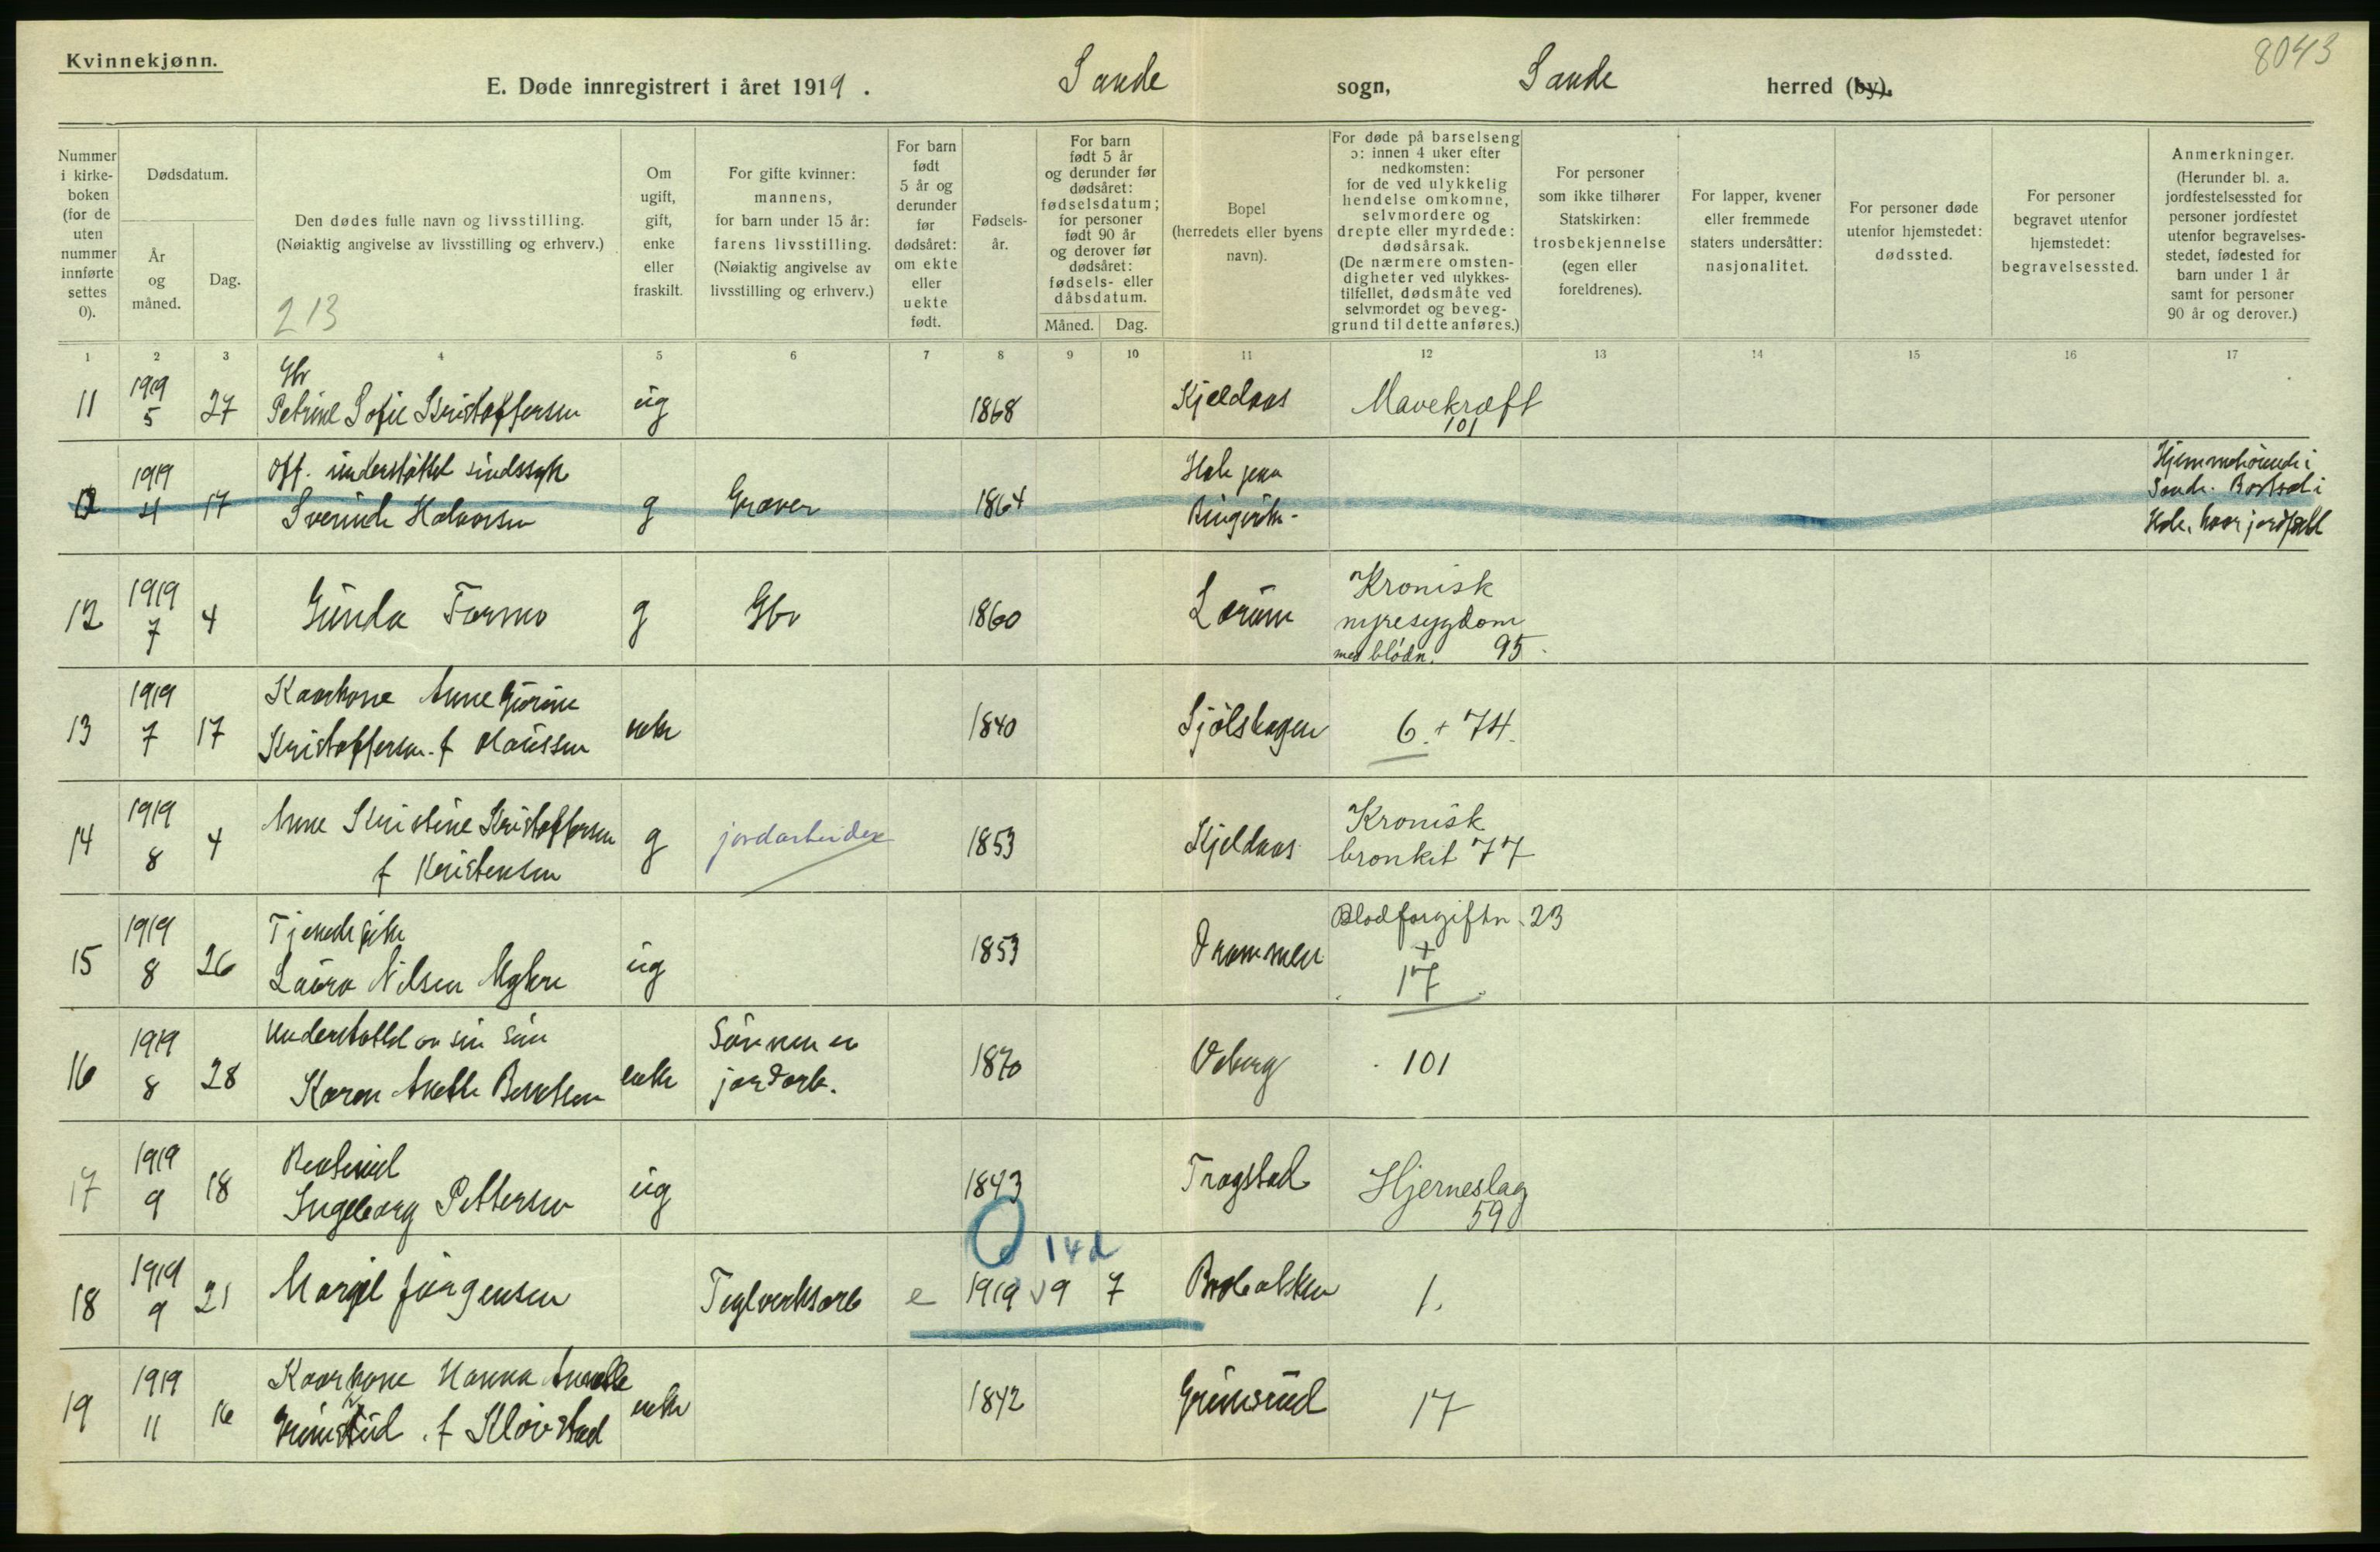 Kvinnekjønn.
8043
E. Døde innregistrert i året 1919. Sande sogn, Sande herred (by).
Nummer i kirke-boken (for de uten nummer innførte settes 0).
Dødsdatum.
År og måned.
Dag.
Den dødes fulle navn og livsstilling.
(Nøiaktig angivelse av livsstilling og erhverv.)
213
Om ugift, gift, enke eller fraskilt.
For gifte kvinner: mannens, for barn under 15 år: farens livsstilling. (Nøiaktig angivelse av livsstilling og erhverv.)
For barn født 5 år og derunder før dødsåret: om ekte eller uekte født.
Fødsels-år.
For barn født 5 år og derunder før dødsåret: fødselsdatum; for personer født 90 år og derover før dødsåret: fødsels- eller dåbsdatum.
Måned. Dag.
Bopel (herredets eller byens navn).
For døde på barselseng ɔ: innen 4 uker efter nedkomsten: for de ved ulykkelig hendelse omkomne, selvmordere og drepte eller myrdede: dødsårsak. (De nærmere omsten-digheter ved ulykkes-tilfellet, dødsmåte ved selvmordet og beveg-grund til dette anføres.)
For personer som ikke tilhører Statskirken: trosbekjennelse (egen eller foreldrenes).
For lapper, kvener eller fremmede staters undersåtter: nasjonalitet.
For personer døde utenfor hjemstedet: dødssted.
For personer begravet utenfor hjemstedet: begravelsessted.
Anmerkninger. (Herunder bl. a. jordfestelsessted for personer jordfestet utenfor begravelses-stedet, fødested for barn under 1 år samt for personer 90 år og derover.)
1 2 3 4 5 6 7 8 9 10 11 12 13 14 15 16 17
Gbr
11 1919 5 27 Petrine Sofie Kristoffersen ug 1868 Kjeldaas Mavekræft 101
off. understøttet sindssyk
1919 4 17 Severinde Halvorsen g Graver 1864 Hole Ringerike - Hjemmehørende i Sande. Bortsat i Hole, hvor jordfæstet
12 1919 7 4 Gunda Formo g Gbr 1860 Lerum Kronisk nyresygdom med blødn. 95
13 1919 7 17 Kaarkone Anne Gurine Kristoffersen f Olaussen enke 1840 Sjølshagen 6. + 74.
14 1919 8 4 Anne Kristine Kristoffersen f Kristensen g jordarbeider 1853 Kjeldaas Kronisk bronkit 77
Tjenestepike
15 1919 8 26 Laura Nilsen Myhre ug 1853 Drammen Blodforgiftn. 23 + 17
Understøttet av sin søn
16 1919 8 28 Karen Anette Bentsen enke Sønnen er jordarb. 1870 Veberg 101
Rentenist
17 1919 9 18 Ingeborg Pettersen ug 1843 Tragstad Hjerneslag 59
14 d
18 1919 9 21 Margit Jørgensen Teglverksarb e 1919 9 7 1.
19 1919 11 16 Kaarkone Hanna Amalie Grimsrud f Kløvstad enke 1842 Grimsrud 17